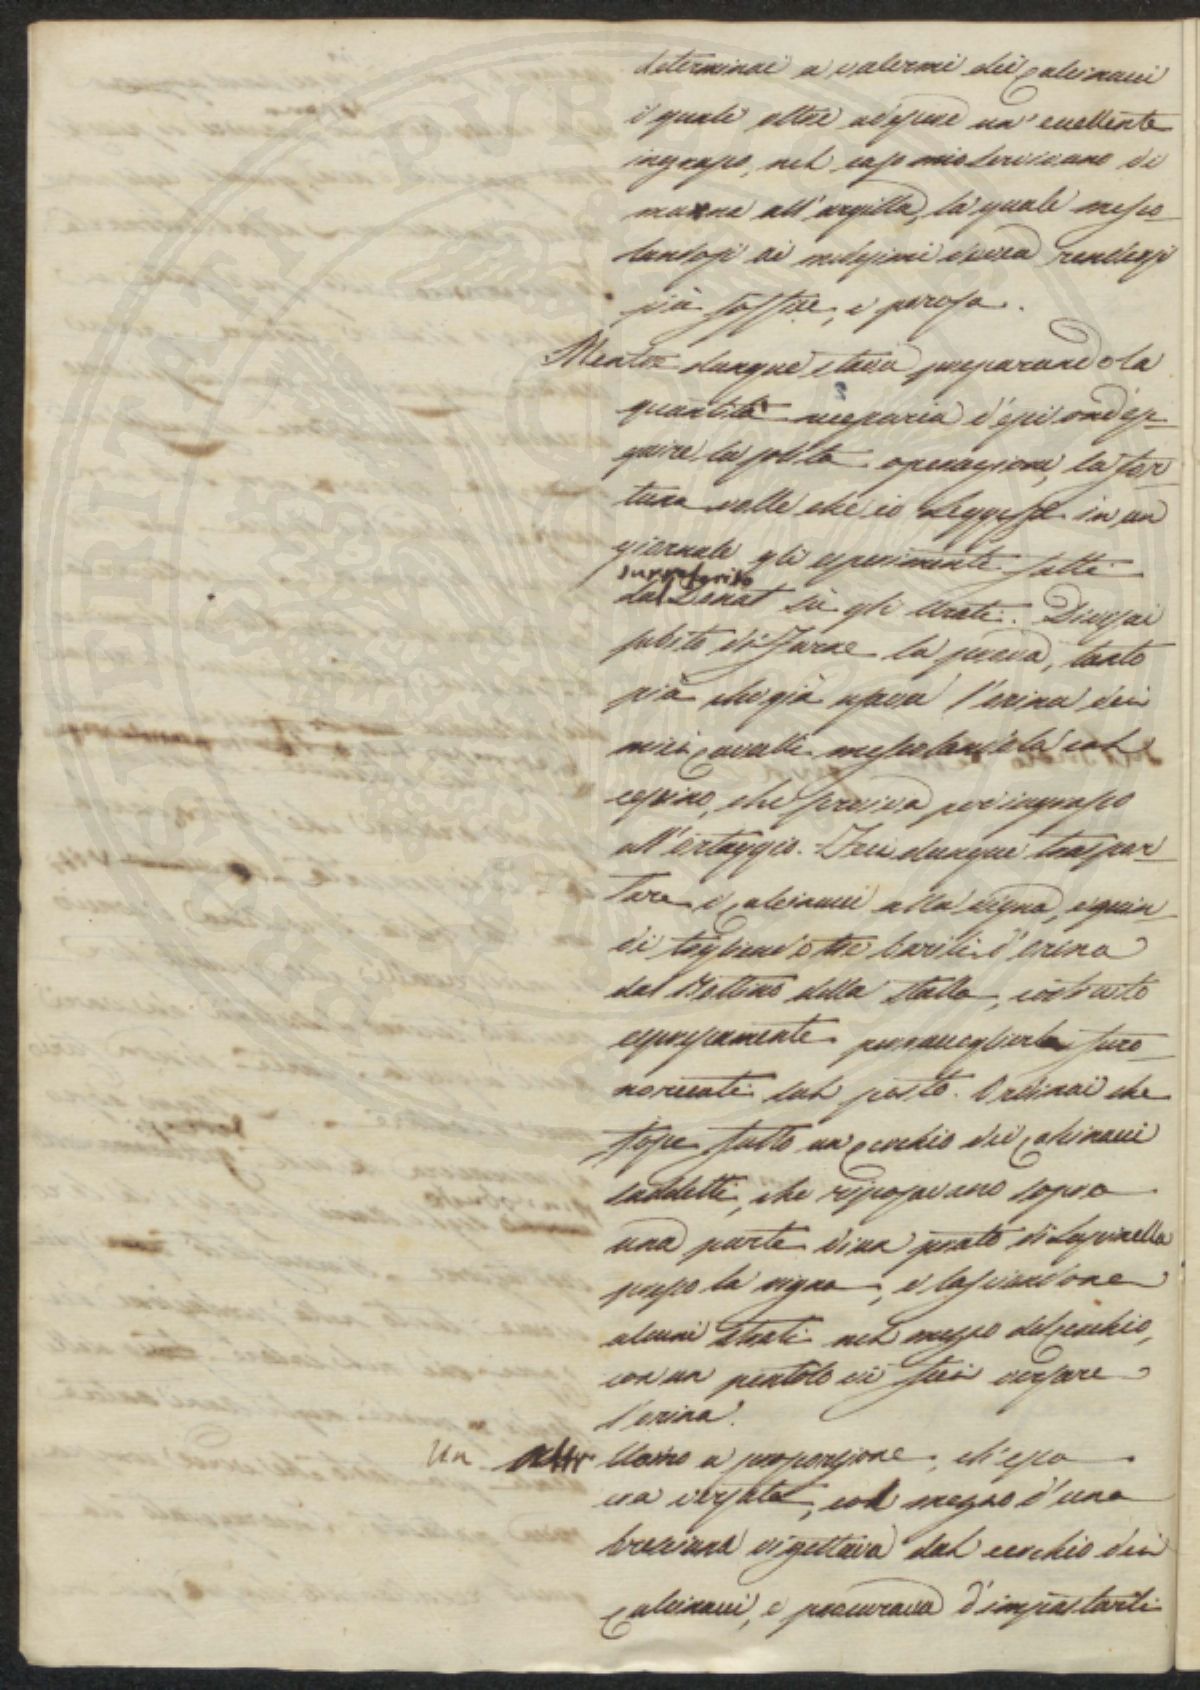 determinai a valermi dei Calcinacci
i quali oltre ad essere un' eccellente
ingrasso, nel caso mio servivano di
manna all'argilla, la quale messo-
landosi ai medesimi dovea rendersi
più soffice, e porosa.
Mentre dunque stava preparando la
quantità necessaria d'essi ond' ese-
guire la solita operazione, la for-
tuna volle che io leggessi in un
giornale gli esperimenti fatti
surriferito
dal Donat sù gli Urati. Decisi
subito di farne la prova, tanto
più che già usava l'orina dei
miei Cavalli mescolandola col
cessino, che serviva per ingrasso
all'ortaggio. Feci dunque traspor-
tare i Calcinacci alla vigna, e quin-
di togliendo tre barili d'orina
dal Bottino della Stalla, costruito
espressamente per raccoglierla furo-
no recati sul posto. Ordinai che
fosse fatto un Cerchio dei Calcinacci
suddetti, che riposavano sopra
una parte di un prato di Lupinella
presso la vigna, e lasciandone
alcuni strati nel mezzo del Cerchio,
con un pentolo vi feci versare
l'orina.
Un Uomo a proporzione, ch'essa
era versata, col mezzo d'una
vi gettava dal cerchio dei
Calcinacci, e procurava d'impastarli